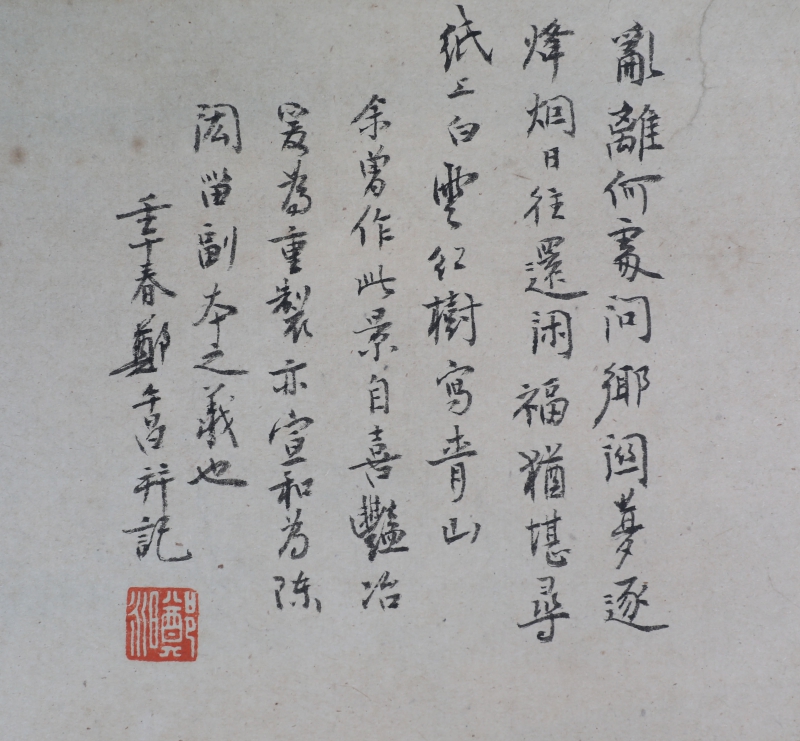 亂離何處問鄉關夢逐
烽烟日往還閑福猶堪尋
紙上白雲紅樹寫青山
余曾作此景自喜豔冶
爰為重製亦宣和為陳
閎留副本之義也
壬午春鄭午昌并記
鄭昶